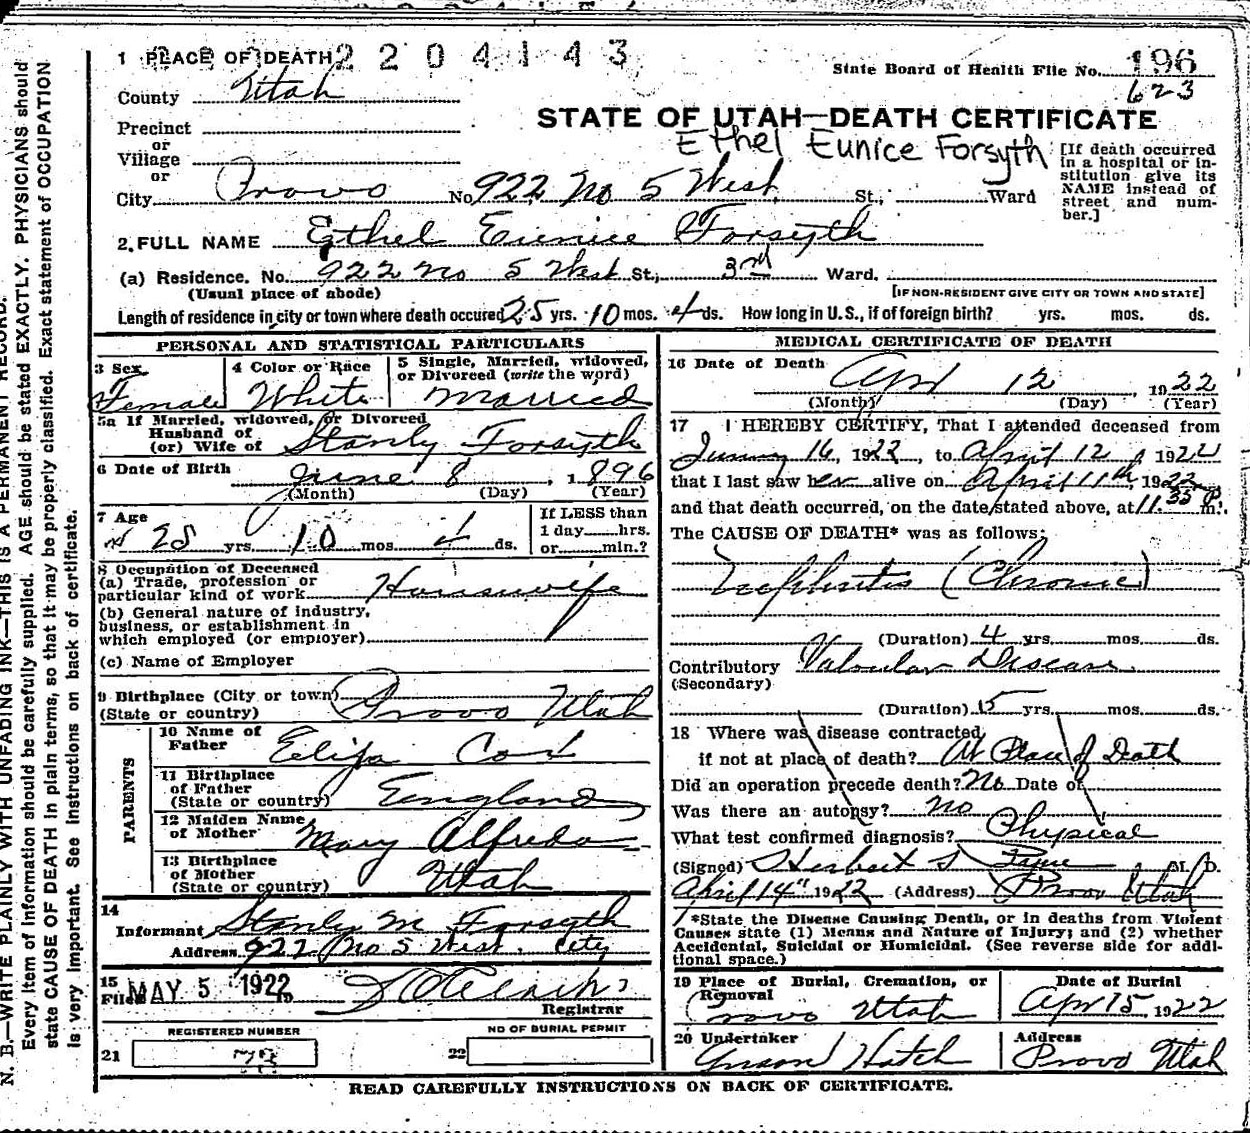 1 PLACE OF DEATH 2204143
State Board of Health File No. 196
623
County Utah
STATE OF UTAH—DEATH CERTIFICATE
Ethel Eunice Forsyth
Precinct
or
Village
or
City Provo No. 922 No 5 West St.; Ward
[If death occurred
in a hospital or in-
stitution give its
NAME instead of
street and num-
ber.]
2. FULL NAME Ethel Eunice Forsyth
(a) Residence. No. 922 No 5 West St., 3rd Ward.
(Usual place of abode)
[IF NON-RESIDENT GIVE CITY OR TOWN AND STATE]
Length of residence in city or town where death occured 25 yrs. 10 mos. 4 ds. How long in U. S., if of foreign birth? yrs. mos. ds.
PERSONAL AND STATISTICAL PARTICULARS
3 Sex
Female
4 Color or Race
White
5 Single, Married, widowed,
or Divorced (write the word)
Married
5a If Married, widowed, or Divorced
Husband of
(or) Wife of Stanly Forsyth
6 Date of Birth June 8, 1896
(Month) (Day) (Year)
7 Age
25 yrs. 10 mos. 4 ds.
If LESS than
1 day hrs.
or min.?
8 Occupation of Deceased
(a) Trade, profession or
particular kind of work Housewife
(b) General nature of industry,
business, or establishment in
which employed (or employer)
(c) Name of Employer
9 Birthplace (City or town)
(State or country) Provo Utah
PARENTS
10 Name of
Father Elija
11 Birthplace
of Father
(State or country) England
12 Maiden Name
of Mother Mary Alfreda
13 Birthplace
of Mother
(State or country) Utah
14
Informant Stanly M Forsyth
Address 922 No 5 West. City
15
Filed MAY 5 1922
Registrar
REGISTERED NUMBER
21 78
NO OF BURIAL PERMIT
22
MEDICAL CERTIFICATE OF DEATH
16 Date of Death Apr 12, 1922
(Month) (Day) (Year)
17 I HEREBY CERTIFY, That I attended deceased from
16, 1922, to April 12, 1922
that I last saw her alive on April 11th, 1922
and that death occurred, on the date stated above, at 11.35 P. m.
The CAUSE OF DEATH* was as follows:
Nephritis (Chronic)
(Duration) 4 yrs. mos. ds.
Contributory Valvular Disease
(Secondary)
(Duration) 15 yrs. mos. ds.
18 Where was disease contracted
if not at place of death? At Place of Death
Did an operation precede death? No Date of
Was there an autopsy? No
What test confirmed diagnosis? Physical
(Signed) Herbert S M. D.
April 14" 1922 (Address) Provo Utah
*State the Disease Causing Death, or in deaths from Violent
Causes state (1) Means and Nature of Injury; and (2) whether
Accidental, Suicidal or Homicidal. (See reverse side for addi-
tional space.)
19 Place of Burial, Cremation, or
Removal
Provo Utah
Date of Burial
Apr 15 1922
20 Undertaker
Hatch
Address
Provo Utah
READ CAREFULLY INSTRUCTIONS ON BACK OF CERTIFICATE.
N. B.—WRITE PLAINLY WITH UNFADING INK—THIS IS A PERMANENT RECORD.
Every item of information should be carefully supplied. AGE should be stated EXACTLY. PHYSICIANS should
state CAUSE OF DEATH in plain terms, so that it may be properly classified. Exact statement of OCCUPATION
is very important. See instructions on back of certificate.